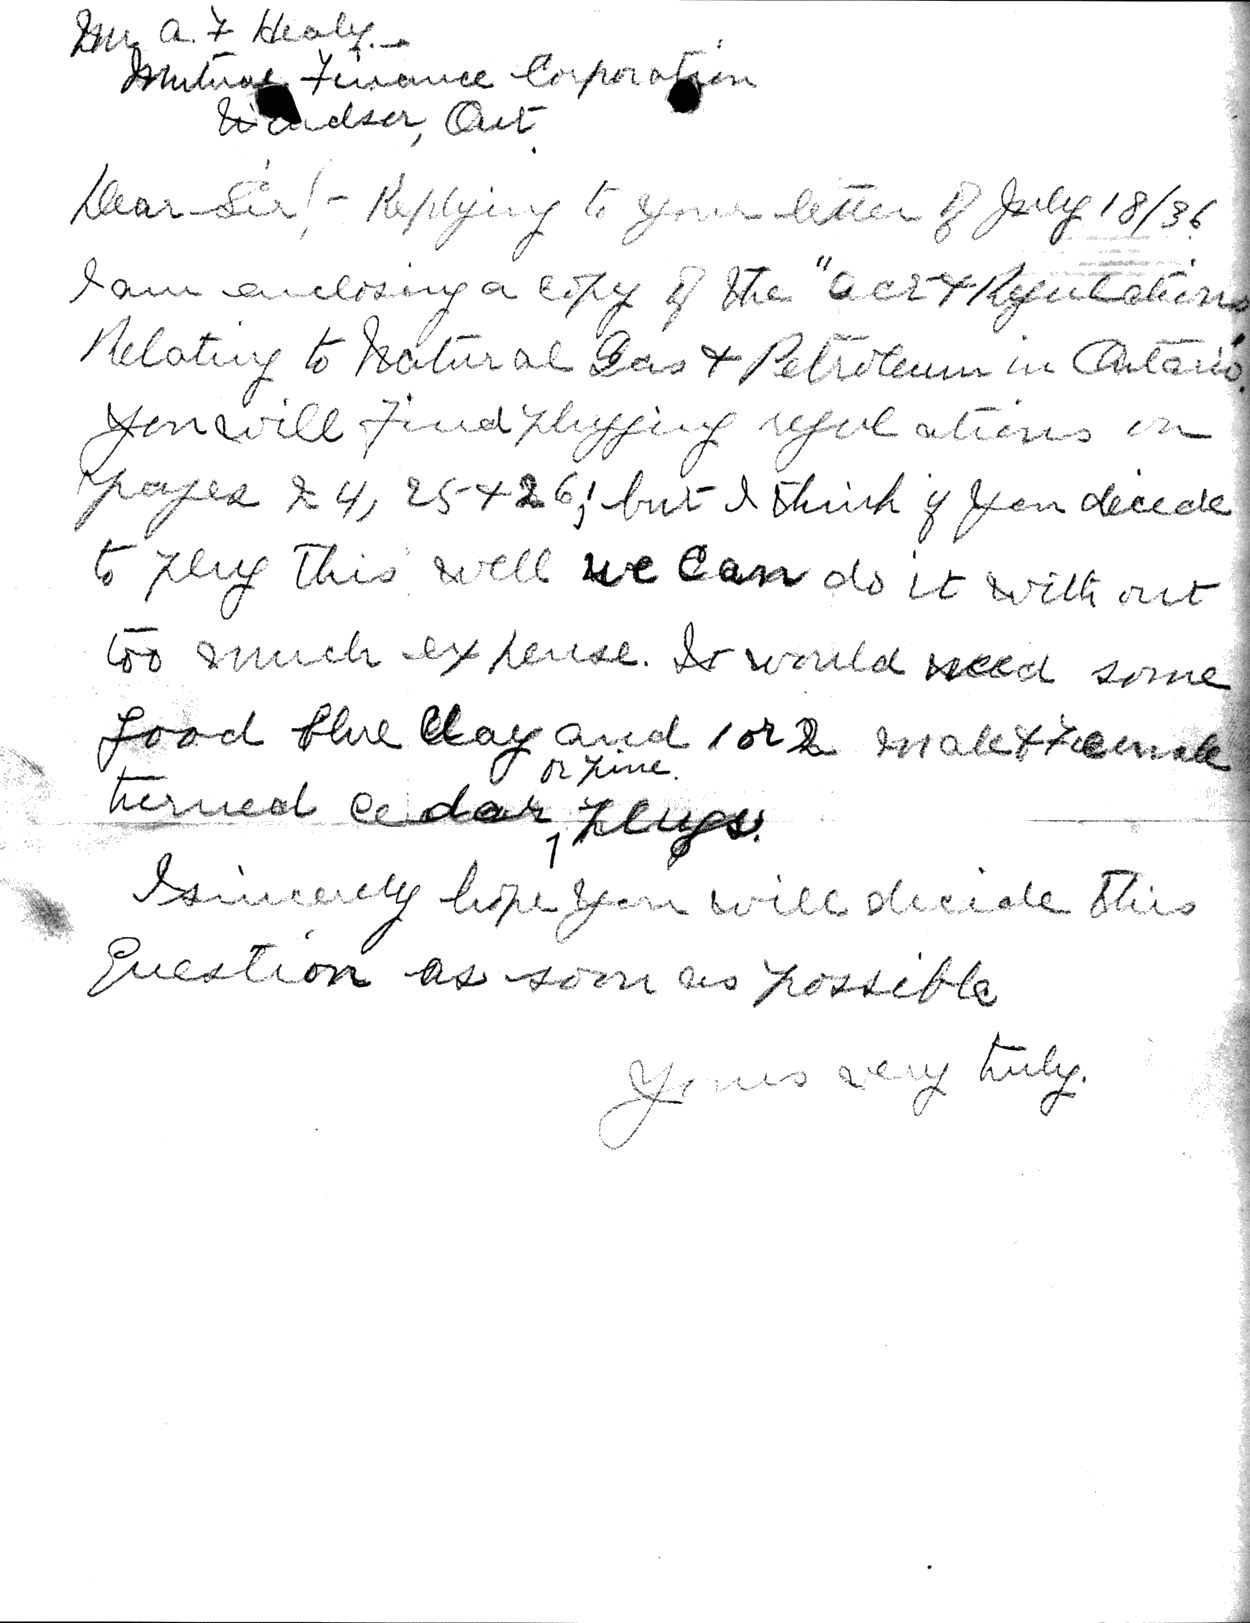 Mr. A. F Healy.
Mutual Finance Corporation
Windsor, Ont.
Dear Sir! - Replying to your letter of July 18/36
I am enclosing a copy of the "Act & Regulations
Relating to Natural Gas & Petroleum in Ontario".
You will find plugging regulations on
pages 24, 25 & 26; but I think if you decide
to plug this well we can do it without
too much expense. It would need some
good blue clay and 1 or 2 male & Female
or pine.
turned cedar plugs.
I sincerely hope you will decide this
Question as soon as possible
Yours very truly.